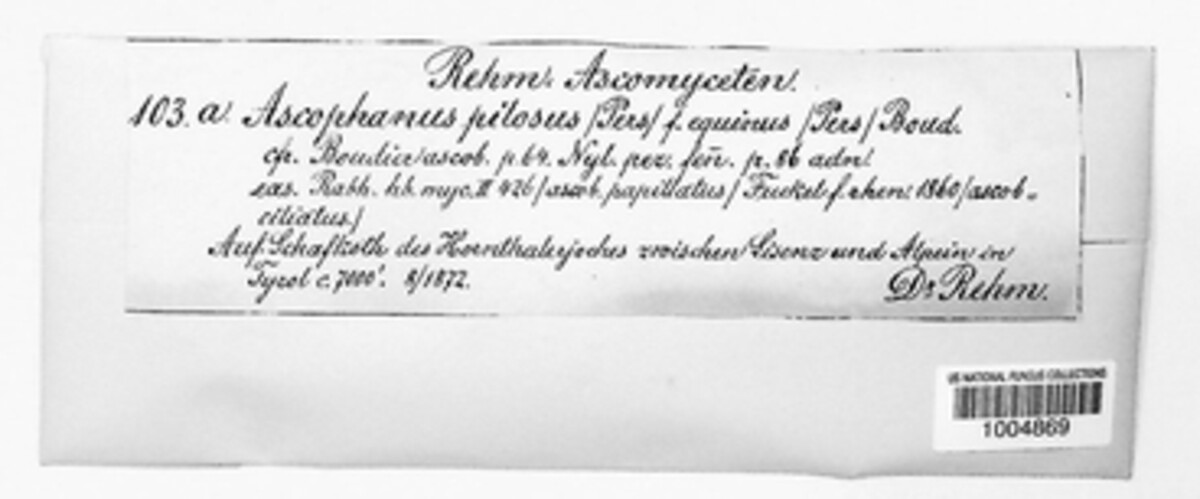 Rehm. Ascomyceten.
103. a. Ascophanus pilosus /Pers/ f. equinus /Pers/ Boud.
cfr. Boudier ascob. p. 64. Nyl. pez. fen. p. 86 adn!
eas. Rabh. hb. myc. II 426 /ascob. papillatus/ Fuckel f. rhen. 1860 /ascob-
ciliatus./
Auf Schafkoth des Hornthalerjoches zwischen Lisenz und Alpein in
Tyrol c. 7000'. 8/1872.
Dr Rehm.
US NATIONAL FUNGUS COLLECTIONS
1004869